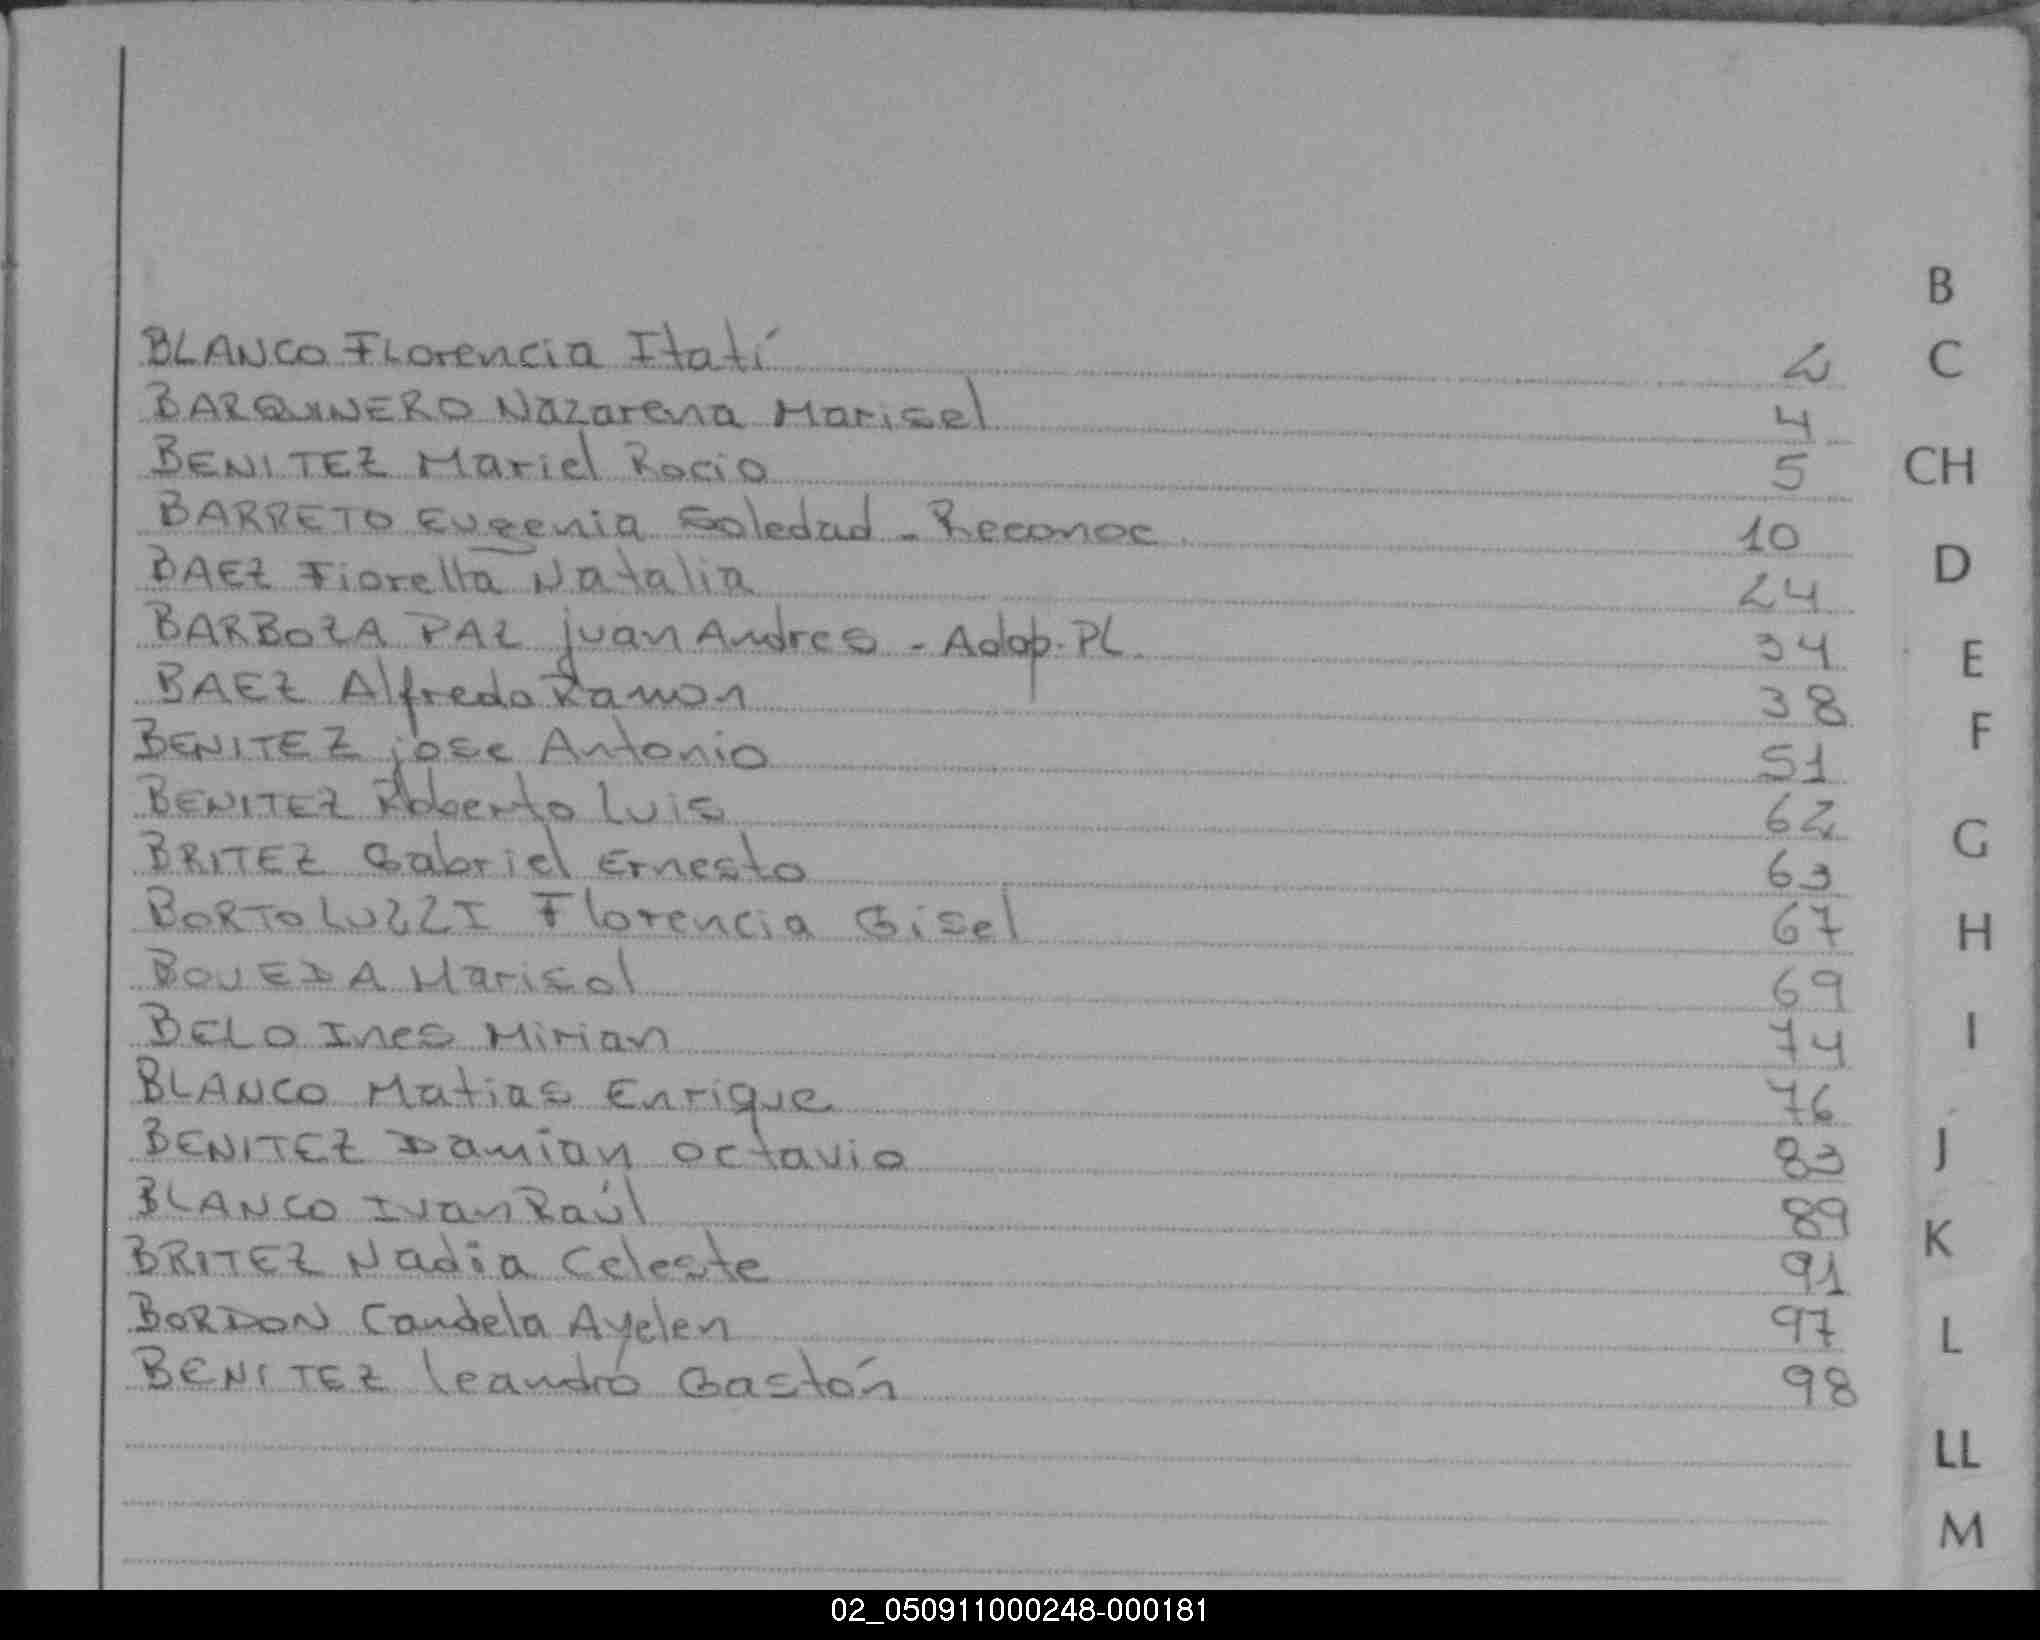 B
BLANCO Florencia Itatí 2
C
BARQUINERO Nazarena Marisel 4
BENITEZ Mariel Rocio 5
CH
BARRETO Eugenia Soledad - Reconoc. 10
BAEZ Fiorella Natalia 24
D
BARBOZA PAZ Juan Andres - Adop. Pl. 34
E
BAEZ Alfredo Ramon 38
F
BENITEZ jose Antonio 51
BENITEZ Roberto Luis 62
G
BRITEZ Gabriel Ernesto 63
BORTOLUZZI Florencia Gisel 67
H
BOVEDA Marisol 69
BELO Ines Mirian 74
I
BLANCO Matias Enrique 76
BENITEZ Damian Octavio 83
J
BLANCO Ivan Raúl 89
K
BRITEZ Nadia Celeste 91
BORDON Candela Ayelen 97
L
BENITEZ Leandro Gastón 98
LL
M
02_050911000248-000181